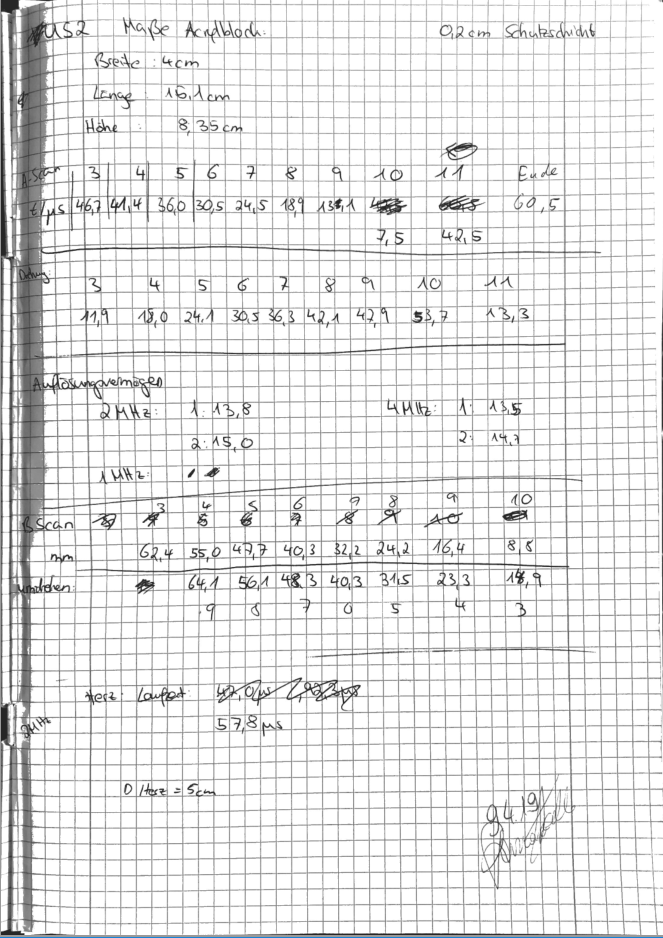 US2 Maße Acrylblock: 0,2cm Schutzschicht
Breite : 4cm
Länge : 15,1cm
Höhe : 8,35cm
A-Scan 3 4 5 6 7 8 9 10 11 Ende
t/µs 46,7 41,4 36,0 30,5 24,5 18,9 13,1 60,5
7,5 42,5
3 4 5 6 7 8 9 10 11
11,9 18,0 24,1 30,5 36,3 42,1 47,9 53,7 13,3
Auflösungsvermögen
2MHz: 1: 13,8 4MHz: 1: 13,5
2: 15,0 2: 14,7
1MHz:
3 4 5 6 7 8 9 10
B Scan
mm 62,4 55,0 47,7 40,3 32,2 24,2 16,4 8,8
umdrehen: 64,1 56,1 48,3 40,3 31,5 23,3 14,9
9 8 7 6 5 4 3
Herz: Laufzeit:
57,8µs
2MHz
D Herz = 5cm
9.4.19